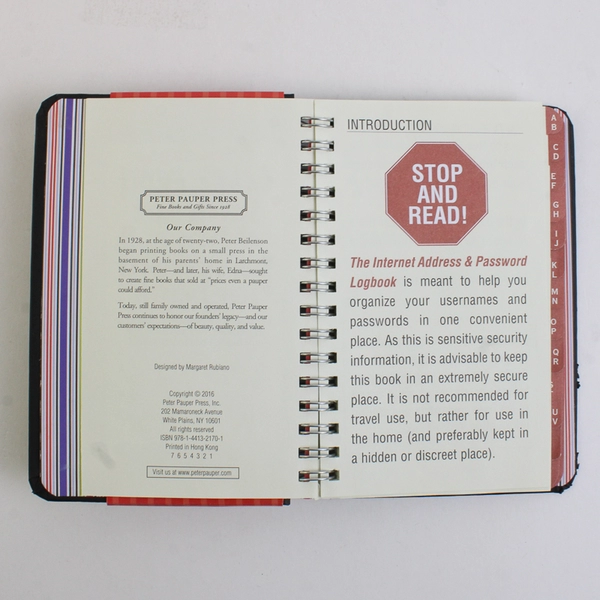 PETER PAUPER PRESS
Fine Books and Gifts Since 1928
Our Company
In 1928, at the age of twenty-two, Peter Beilenson
began printing books on a small press in the
basement of his parents' home in Larchmont,
New York. Peter—and later, his wife, Edna—sought
to create fine books that sold at "prices even a pauper
could afford."
Today, still family owned and operated, Peter Pauper
Press continues to honor our founders' legacy—and our
customers' expectations—of beauty, quality, and value.
Designed by Margaret Rubiano
Copyright © 2016
Peter Pauper Press, Inc.
202 Mamaroneck Avenue
White Plains, NY 10601
All rights reserved
ISBN 978-1-4413-2170-1
Printed in Hong Kong
7 6 5 4 3 2 1
Visit us at www.peterpauper.com
INTRODUCTION
STOP
AND
READ!
The Internet Address & Password
Logbook is meant to help you
organize your usernames and
passwords in one convenient
place. As this is sensitive security
information, it is advisable to keep
this book in an extremely secure
place. It is not recommended for
travel use, but rather for use in
the home (and preferably kept in
a hidden or discreet place).
A
B
C
D
E
F
G
H
I
J
K
L
M
N
O
P
Q
R
U
V